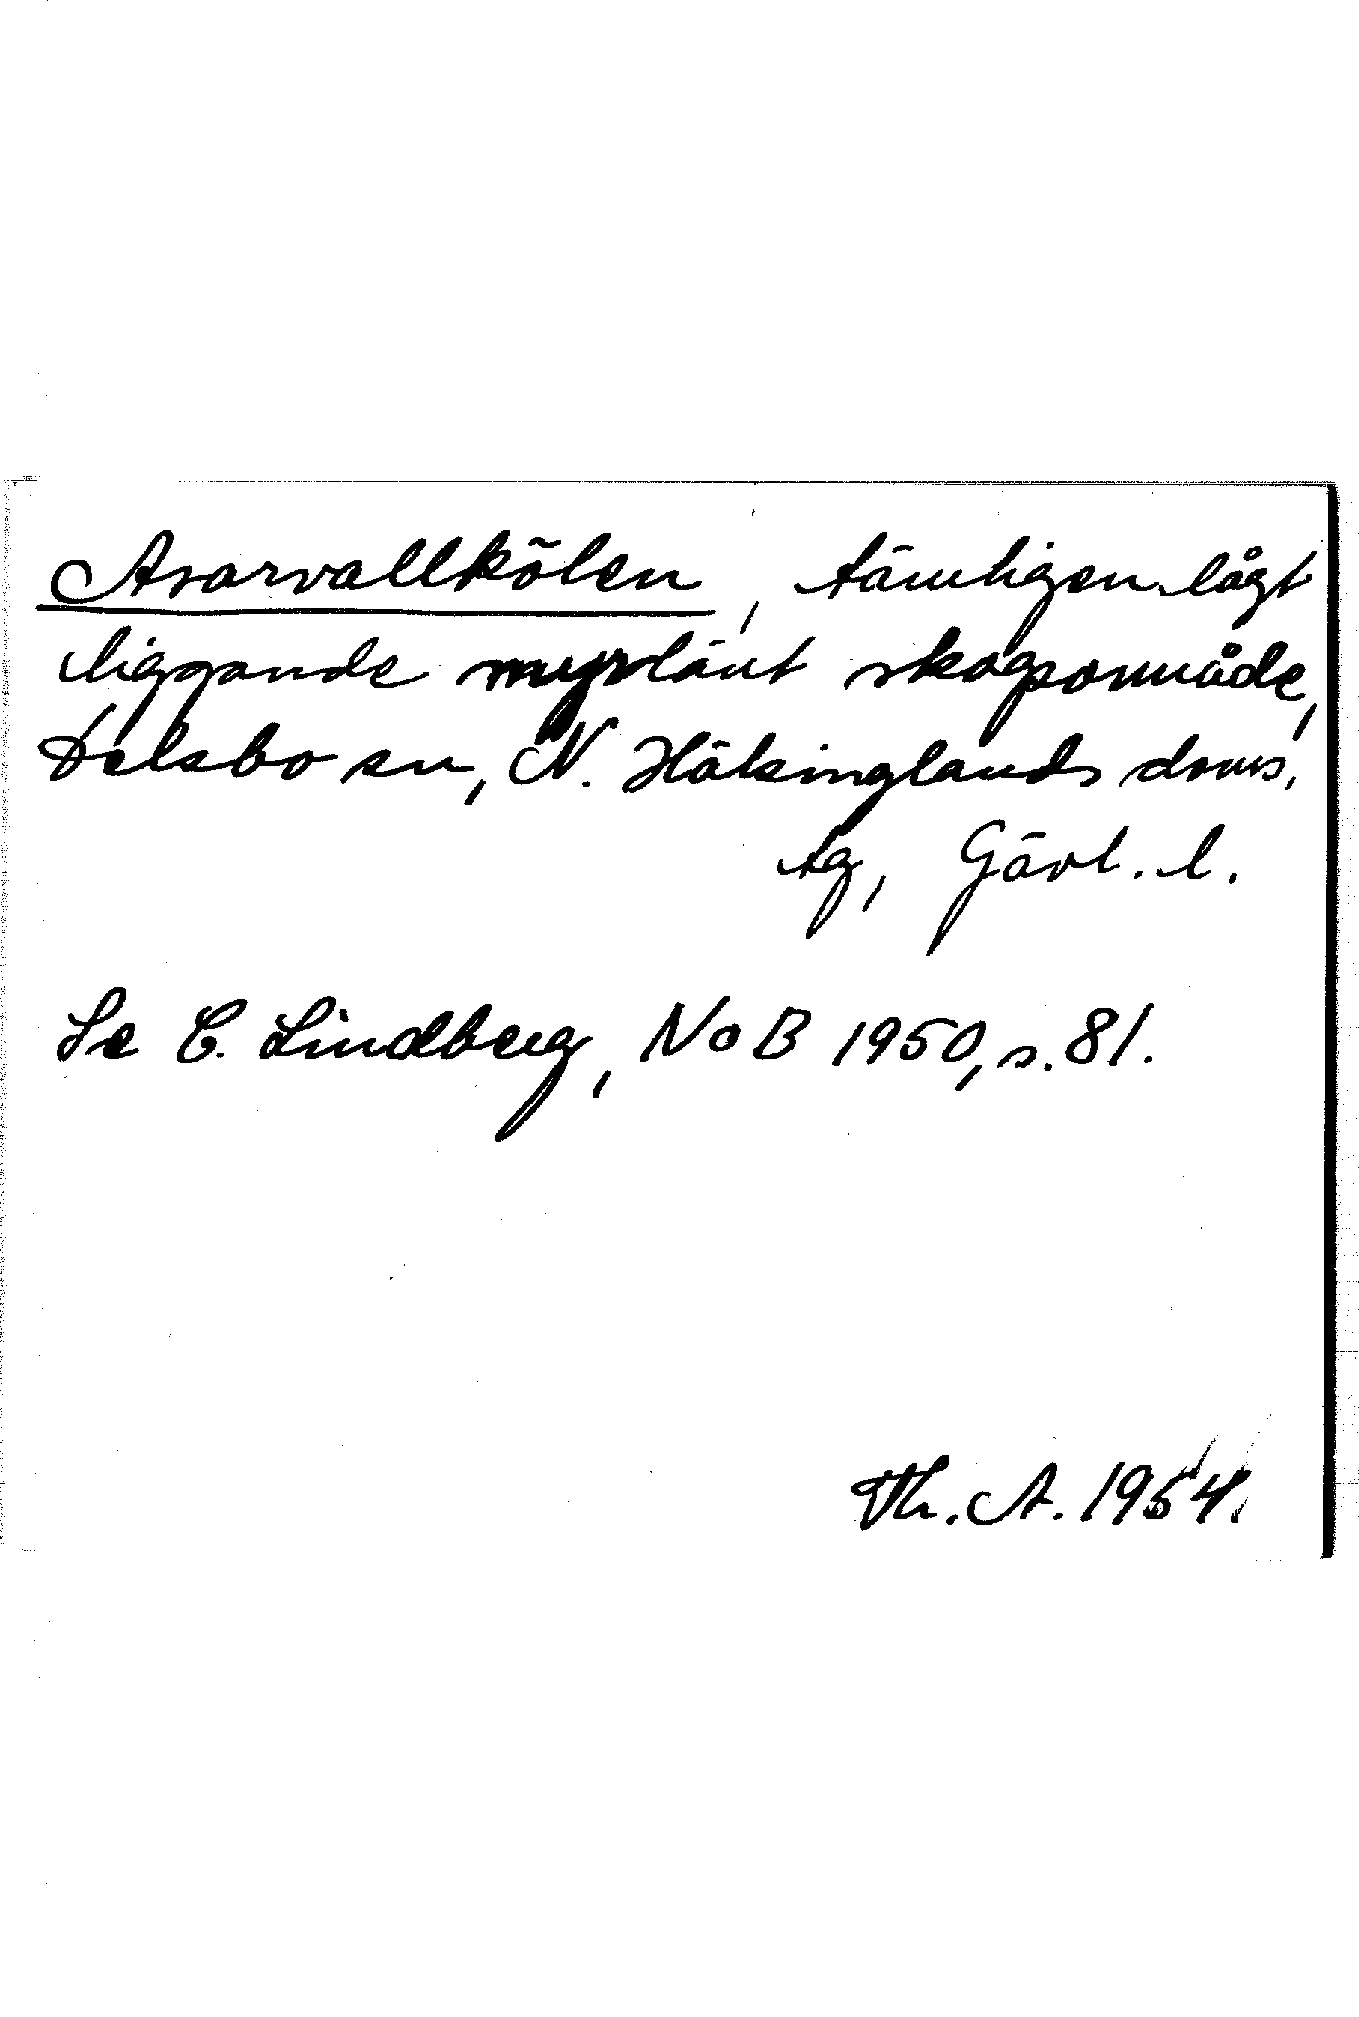 Asarvallkölen, tämligen lågt
liggande myrlänt skogsområde,
Delsbo sn, N. Hälsinglands doms.
tg, Gävl. l.
Se C. Lindberg, NoB 1950, s. 81.
Th. A. 1954.